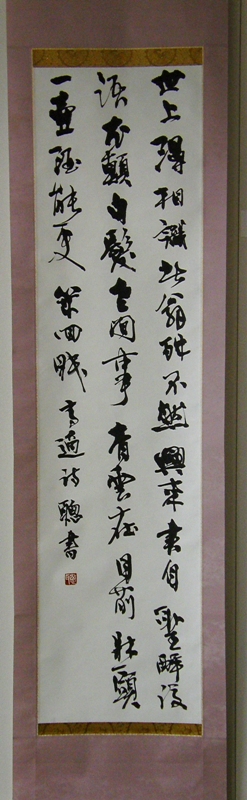 世上謾相識此翁殊不然興來書自聖醉後
語尤顛白髮老閒事青雲在目前牀頭
一壷酒能更幾回眠 高適詩 聰書